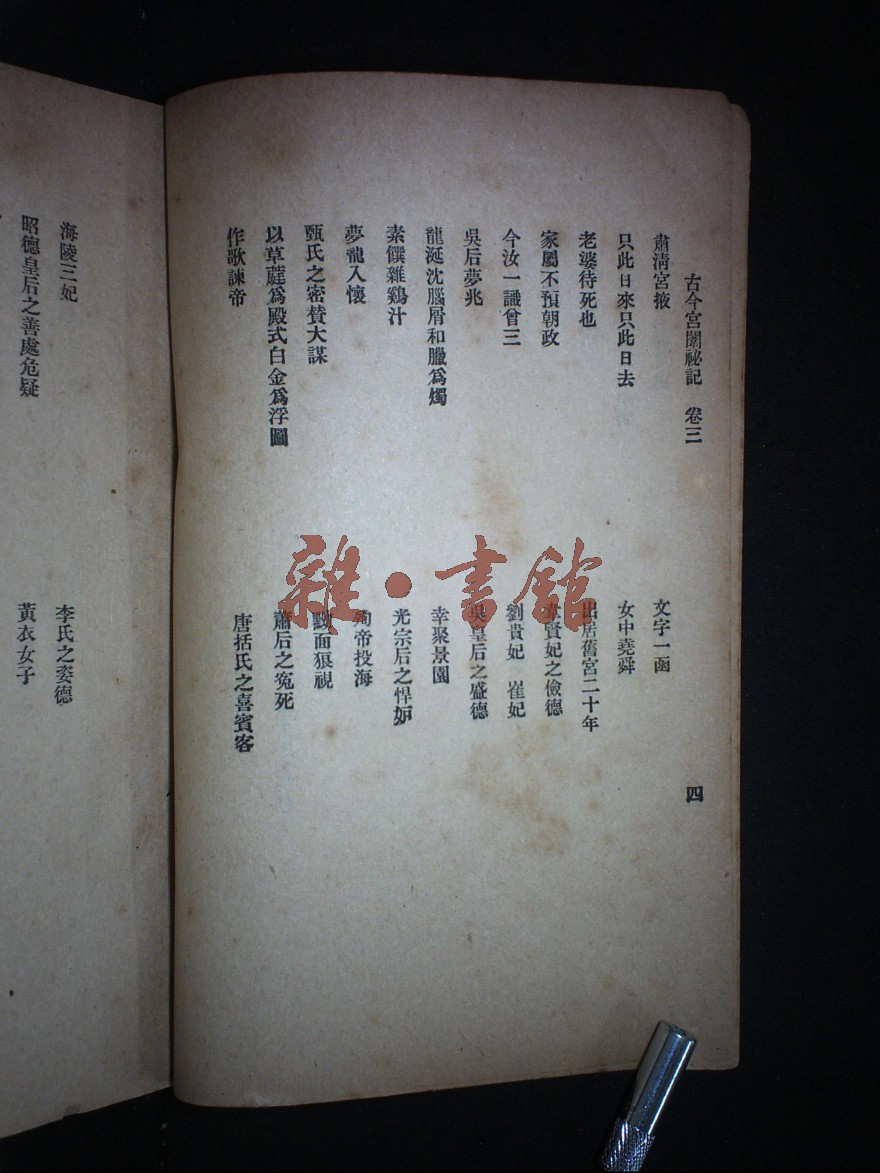 古今宮闈祕記　卷三　四
肅清宮掖　文字一函
只此日來只此日去　女中堯舜
老婆待死也　出居舊宮二十年
家屬不預朝政　韋賢妃之儉德
今汝一讖曾三　劉貴妃　崔妃
吳后夢兆　吳皇后之盛德
龍涎沈腦屑和臘爲燭　幸聚景園
素饌雜鷄汁　光宗后之悍妒
夢龍入懷　殉帝投海
甄氏之密贊大謀　黝面狼視
以草莚爲殿式白金爲浮圖　蕭后之冤死
作歌諫帝　唐括氏之喜賓客
海陵三妃　李氏之姿德
昭德皇后之善處危疑　黃衣女子
雜·書館